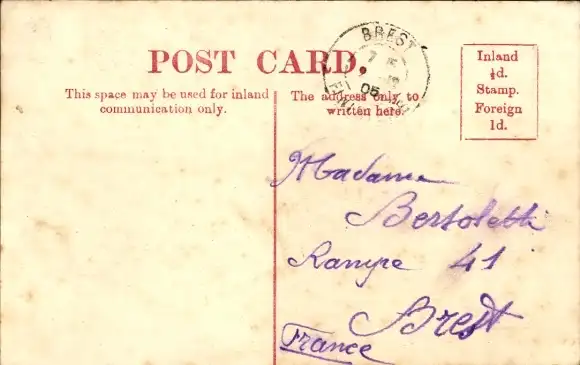 POST CARD.
This space may be used for inland
communication only.
The address only to
written here.
BREST
05
Inland
½d.
Stamp.
Foreign
1d.
Madame
Bertoletti
Rampe 41
Brest
France